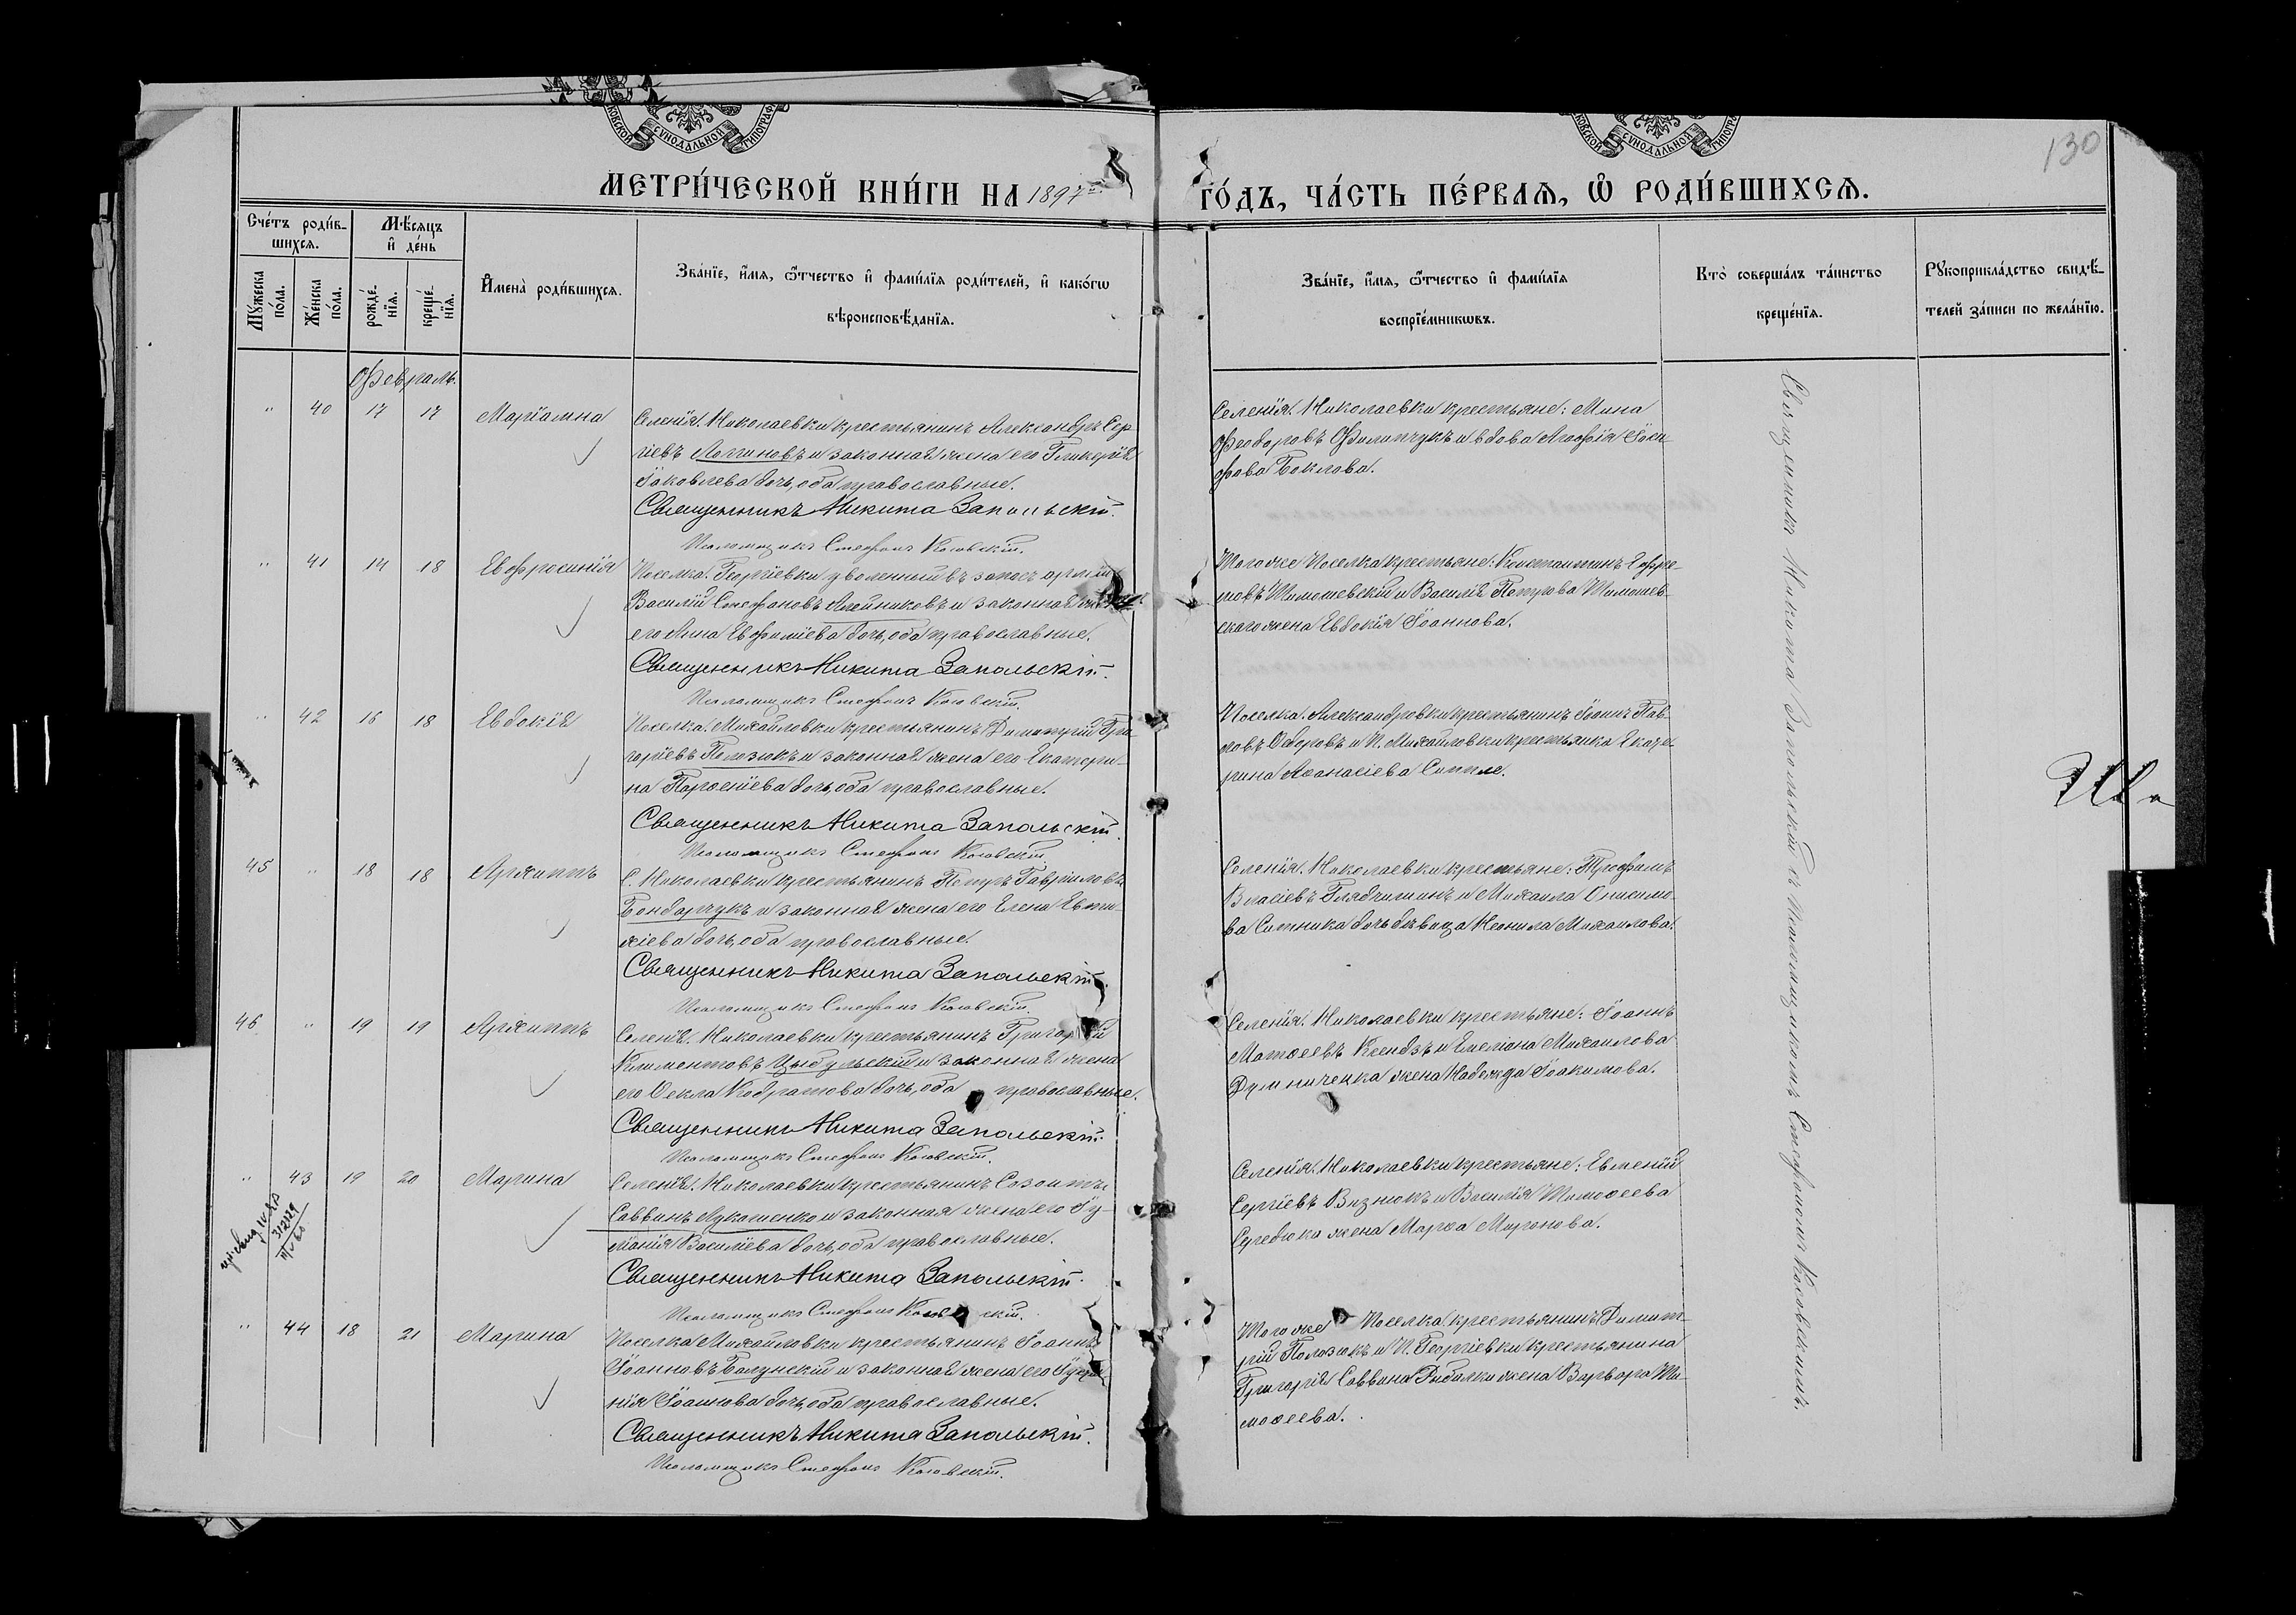 МОСКОВСКОЙ СѴНОДАЛЬНОЙ ТИПОГРАФ
МОСКОВСКОЙ СѴНОДАЛЬНОЙ ТИПОГРАФ
130
МЕТРИ́ЧЕСКОЙ КНИ́ГИ НА 1897 ГО́ДЪ, ЧА́СТЬ ПЕ́РВАѦ, Ѽ РОДИ́ВШИХСѦ.
Сче́тъ роди́в-
шихсѧ.
Мѣ́сѧцъ
и҆ де́нь
Мꙋ́жеска
по́ла.
Же́нска
по́ла.
рожде́-
нїѧ.
креще́-
нїѧ.
И҆мена̀ роди́вшихсѧ.
Зва́нїе, и҆́мѧ, ѻ҆́тчество и҆ фами́лїѧ роди́телей, и҆ како́гѡ
вѣроисповѣ́данїѧ.
Зва́нїе, и҆́мѧ, ѻ҆́тчество и҆ фами́лїѧ
воспрїе́мникѡвъ.
Кто̀ соверша́лъ та́инство
креще́нїѧ.
Рꙋкоприкла́дство свидѣ́-
телей за́писи по жела́нїю.
Февраль.
" 40 17 17 Марiамна
Селенiя Николаевки крестьянинъ Александръ Сер-
гiевъ Логиновъ и законная жена его Гликерiя
Iаковлева дочь, оба православные.
Священникъ Никита Запольскiй.
Псаломщикъ Стефанъ Косовскiй.
Селенiя Николаевки крестьяне: Мина
Феодоровъ Филипчукъ и вдова Агафiя Iоси-
фова Боклова.
" 41 14 18 Евфросинiя
Поселка Георгiевки уволенный въ запас армiи
Василiй Стефановъ Олейниковъ и законная жена
его Анна Евфимiева дочь, оба православные.
Священникъ Никита Запольскiй.
Псаломщикъ Стефанъ Косовскiй.
Того же Поселка крестьяне: Константинъ Ефре-
мовъ Тимошевскiй и Василiя Петрова Тимошев-
скаго жена Евдокiя Iоаннова.
" 42 16 18 Евдокiя
Поселка Михайловки крестьянинъ Димитрiй Гри-
горiевъ Полозюкъ и законная жена его Екатери-
на Парѳенiева дочь, оба православные.
Священникъ Никита Запольскiй.
Псаломщикъ Стефанъ Косовскiй.
Поселка Александровки крестьянинъ Iоаннъ Пав-
ловъ Федоровъ и П. Михайловки крестьянка Екате-
рина Аѳанасiева
45 " 18 18 Архиппъ
С. Николаевки крестьянинъ Петръ Гаврiиловъ
Бондарчукъ и законная жена его Елена Евти-
хiева дочь, оба православные.
Священникъ Никита Запольскiй.
Псаломщикъ Стефанъ Косовскiй.
Селенiя Николаевки крестьяне: Трофимъ
Власiевъ и Михаила Онисимо-
ва Ситника дочь девица Неонила Михаилова.
46 " 19 19 Архиппъ
Селенiя Николаевки крестьянинъ Григорiй
Климентовъ Цыбульскiй и законная жена
его Ѳекла Кодратова дочь, оба православные.
Священникъ Никита Запольскiй.
Псаломщикъ Стефанъ Косовскiй.
Селенiя Николаевки крестьяне: Iоаннъ
Матѳеевъ Ксендзъ и Емелiана Михаилова
Думниченка жена Надежда Iоакимова.
" 43 19 20 Марина
Селенiя Николаевки крестьянинъ Созонтъ
Саввинъ Лукашенко и законная жена его Iу-
лiанiя Василiева дочь, оба православные.
Священникъ Никита Запольскiй.
Псаломщикъ Стефанъ Косовскiй.
Селенiя Николаевки крестьяне: Евменiй
Сергiевъ Визнюкъ и Василiя Тимоѳеева
Середюка жена Марѳа Миронова.
" 44 18 21 Марина
Поселка Михайловки крестьянинъ Iоаннъ
Iоанновъ Балунскiй и законная жена его
нiя Iоаннова дочь, оба православные.
Священникъ Никита Запольскiй.
Псаломщикъ Стефанъ Косовскiй.
Того же Поселка крестьянинъ Димит-
рiй Полозюкъ и П. Георгiевки крестьянина
Григорiя Саввина Рибалки жена Варвара Ти-
моѳеева.
Священникъ Никита Запольскiй съ псаломщикомъ Стефаномъ Косовскимъ.